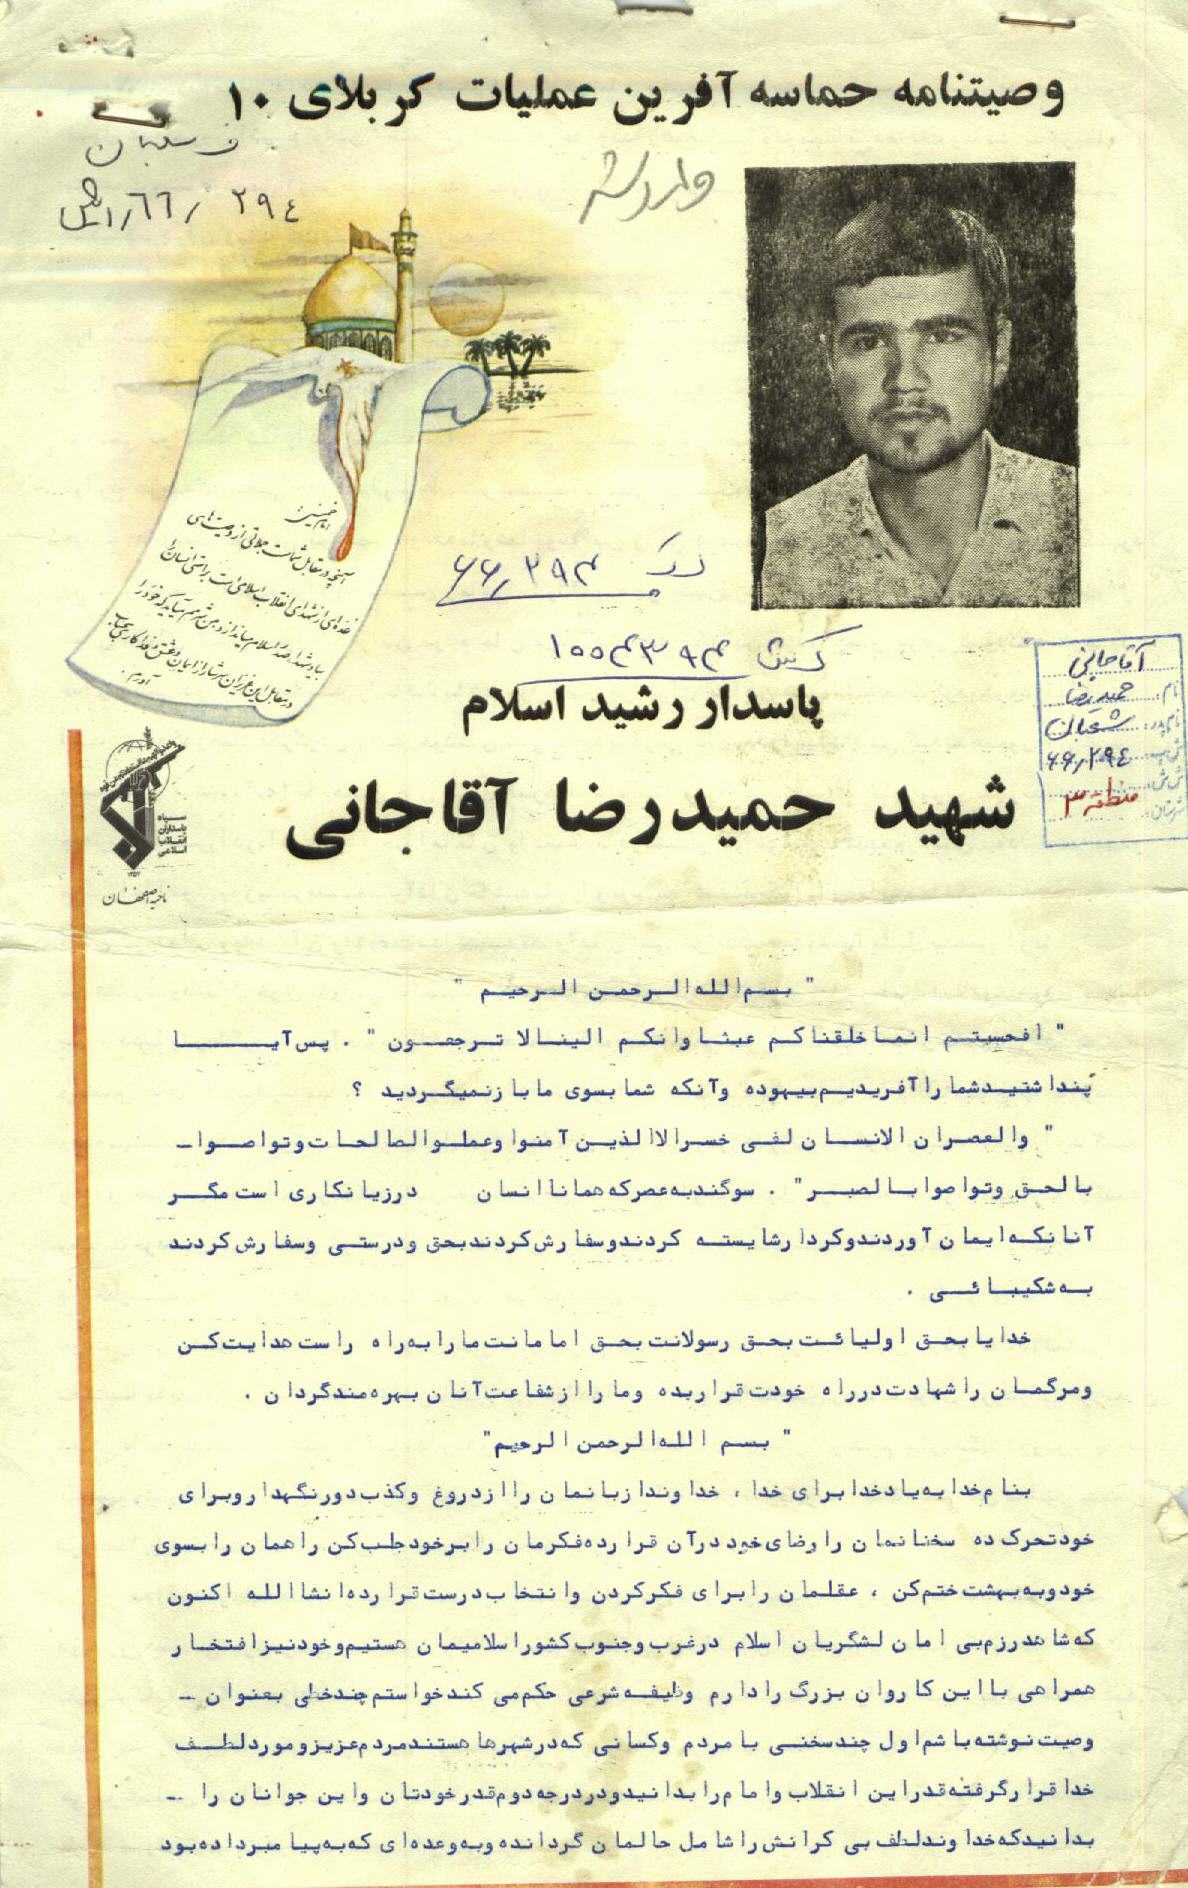 وصیتنامه حماسه آفرین عملیات کربلای ۱۰
وارد شد
۲۹٤ /٦٦/
امام خمینی:
کد ۶۶٫۲۹۴
کش ۱۰۰۴۳۹۴
پاسدار رشید اسلام
شهید حمیدرضا آقاجانی
آقاجانی
نام: حمیدرضا
نام پدر: شعبان
۶۶٫۲۹٤
منطقه ۳
سپاه
پاسداران
انقلاب
اسلامی
ناحیه اصفهان
" بسم الله الرحمن الرحیم "
" افحسبتم انما خلقناکم عبثا وانکم الینا لا ترجعون " . پس آیا
پنداشتید شما را آفریدیم بیهوده وآنکه شما بسوی ما بازنمیگردید ؟
" والعصران الانسان لفی خسرالاالذین آمنوا وعملوالصالحات وتواصوا ـ
بالحق وتواصوا بالصبر" . سوگند به عصر که همانا انسان درزیانکاری است مگر
آنانکه ایمان آوردند وکردار شایسته کردند وسفارش کردند بحق ودرستی وسفارش کردند
به شکیبائی .
خدایا بحق اولیائت بحق رسولانت بحق امامانت ما را به راه راست هدایت کن
ومرگمان را شهادت درراه خودت قراربده وما را ازشفاعت آنان بهره مند گردان .
" بسم الله الرحمن الرحیم"
بنام خدا به یاد خدا برای خدا ، خداوندا زبانمان را ازدروغ وکذب دورنگهدار وبرای
خود تحرک ده سخنانمان را رضای خود درآن قرار ده فکرمان را برخود جلب کن راهمان را بسوی
خود وبه بهشت ختم کن ، عقلمان را برای فکرکردن وانتخاب درست قرار ده انشاالله اکنون
که شاهد رزم بی امان لشگریان اسلام درغرب وجنوب کشوراسلامیمان هستیم وخود نیز افتخار
همراهی بااین کاروان بزرگ را دارم وظیفه شرعی حکم می کند خواستم چند خطی بعنوان ـ
وصیت نوشته باشم اول چند سخنی با مردم وکسانی که درشهرها هستند مردم عزیز ومورد لطف
خدا قرار گرفته قدر این انقلاب وامام را بدانید ودردرجه دوم قدرخودتان واین جوانان را ـ
بدانید که خداوند لطف بی کرانش را شامل حالمان گردانده وبه وعده ای که به پیامبر داده بود